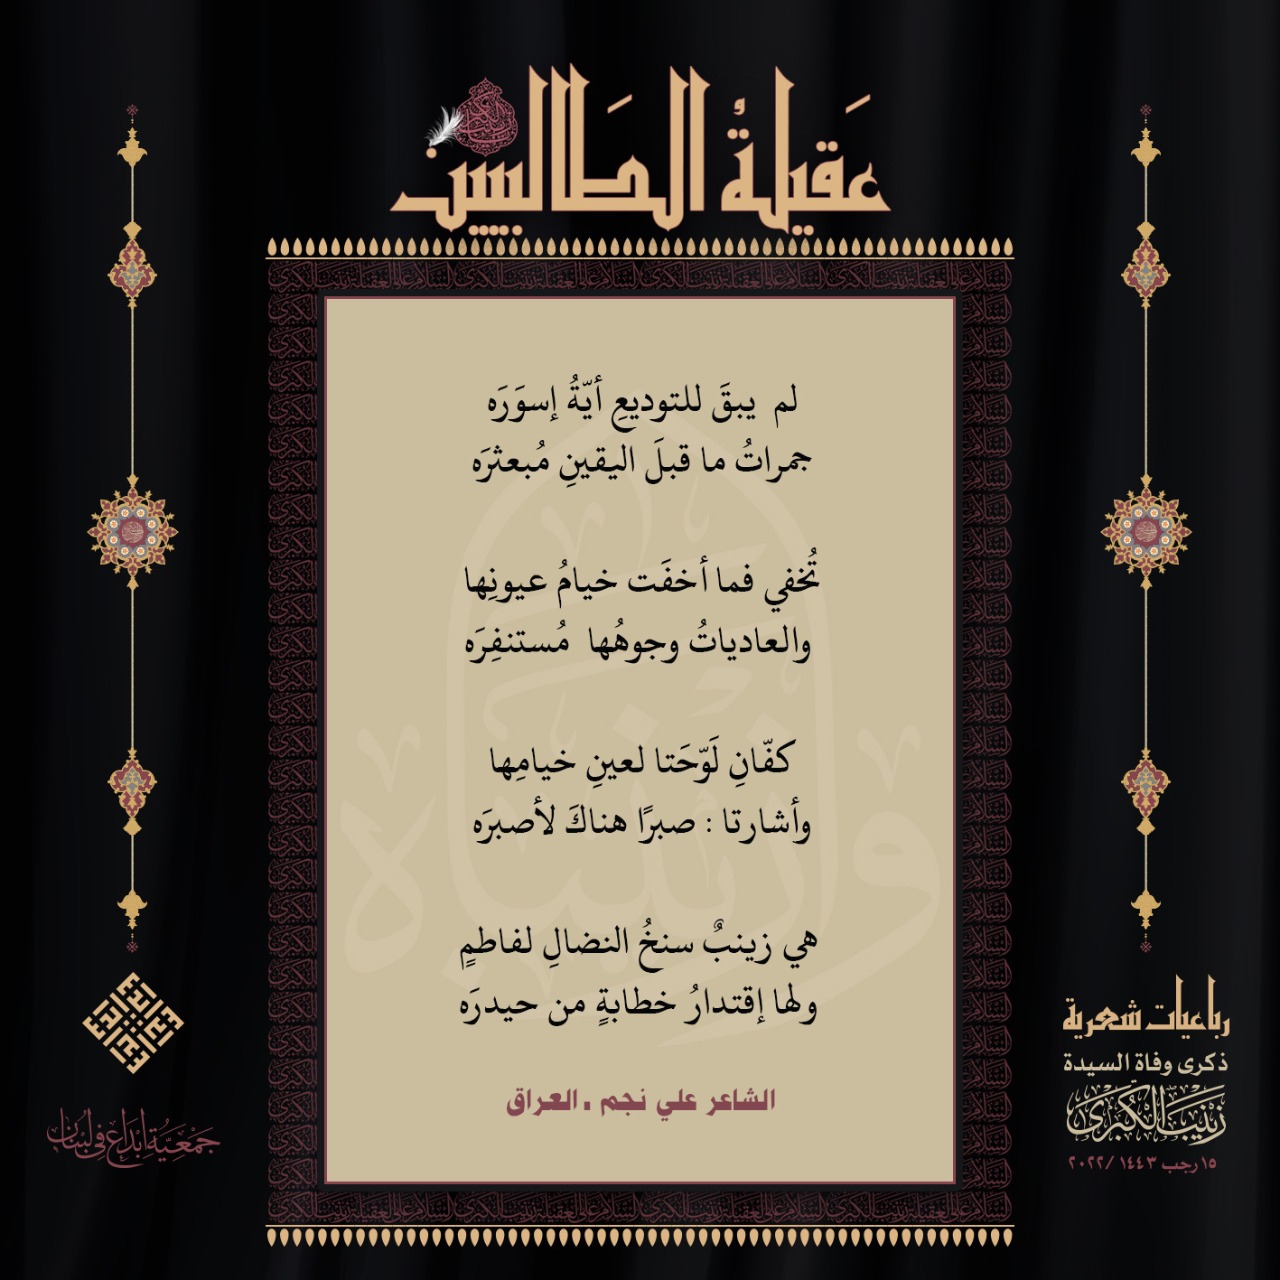 عَقيلةُ الطَالبيين
لم يبقَ للتوديعِ أيّةُ إسوَرَه
جمراتُ ما قبلَ اليقينِ مُبعثرَه
تُخفي فما أخفَت خيامُ عيونِها
والعادياتُ وجوهُها مُستنفِرَه
كفّانِ لَوّحَتا لعينِ خيامِها
وأشارتا : صبرًا هناكَ لأصبرَه
هي زينبٌ سنخُ النضالِ لفاطمٍ
ولها إقتدارُ خطابةٍ من حيدرَه
الشاعر علي نجم . العراق
رباعيات شعرية
ذكرى وفاة السيدة
زَيْنَبَ الْكُبْرَىٰ
١٥ رجب ١٤٤٣ /٢٠٢٢
جَمْعِيَّةُ إبْدَاع فِي لُبْنَان